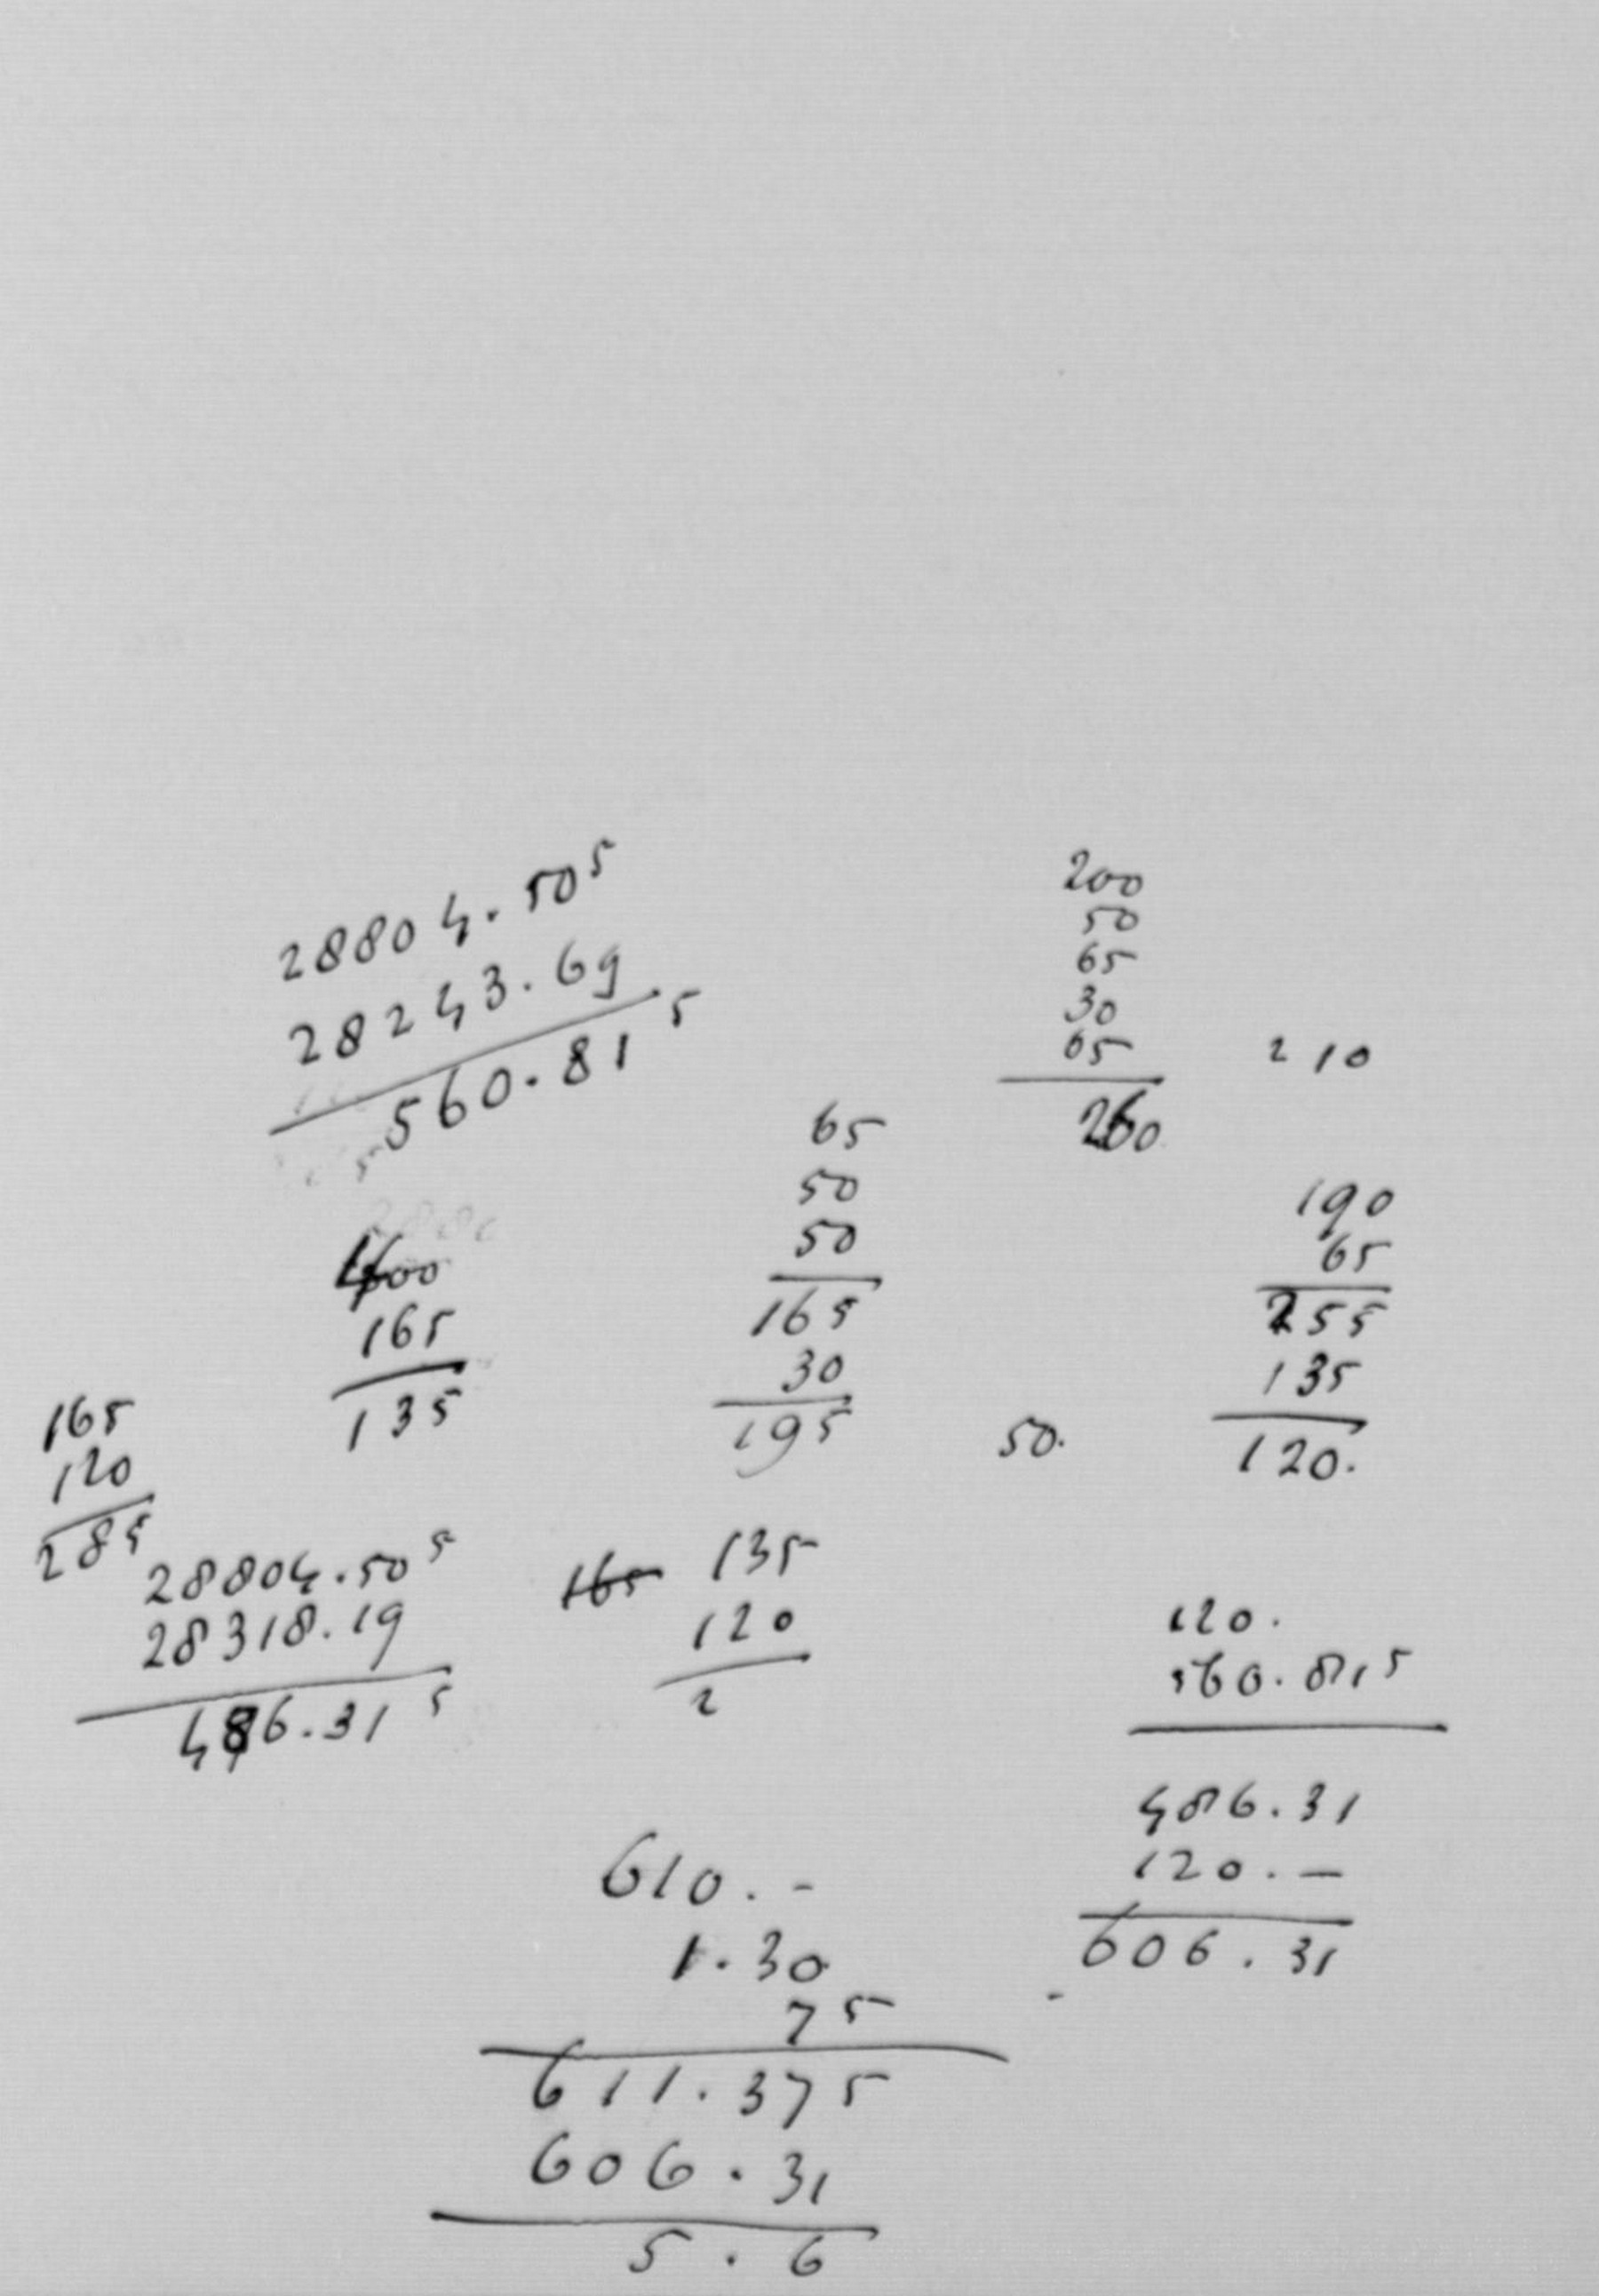 28804.50⁵
28243.69
560.81⁵
200
50
65
30
65
260
210
65
50
50
165
30
195
190
65
255
135
120.
165
135
50.
165
120
285
28804.50⁵
28318.19
486.31⁵
165 135
120
2
120.
560.81⁵
486.31
120.—
606.31
610.-
1.30
75
611.375
606.31
5.6